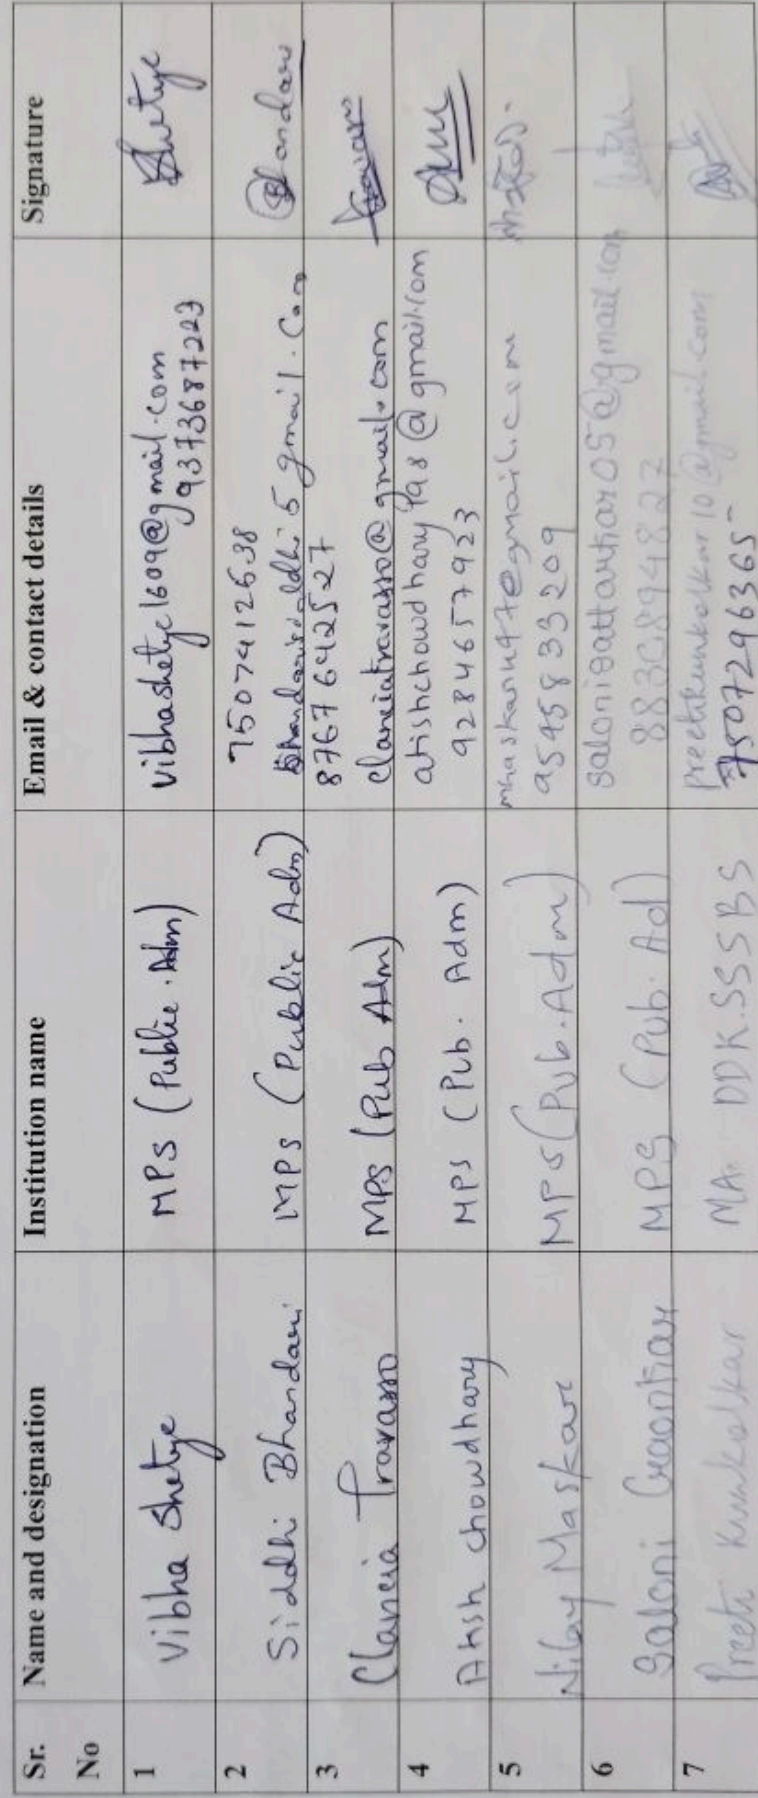 Sr. No Name and designation Institution name Email & contact details Signature
1 Vibha Shetye MPS (Public . Adm) vibhashetye1609@gmail.com Shetye
9373687223
2 Siddhi Bhandari MPS (Public Adm) 7507412638 Bhandari
5 gmail.com
3 Clancia Travasso MPS (Pub Adm) 8767642527 Travasso
clanciatravasso@gmail.com
4 Atish chowdhary MPS (Pub. Adm) atishchowdhary798@gmail.com
9284657923
5 Nilay Maskar MPS (Pub. Adm)
9545833209
6 Saloni Gaontkar MPS (Pub. Ad)
7 Preeti Kunkolkar MA. DDK.SSSBS preetikunkolkar10@gmail.com
7507296365